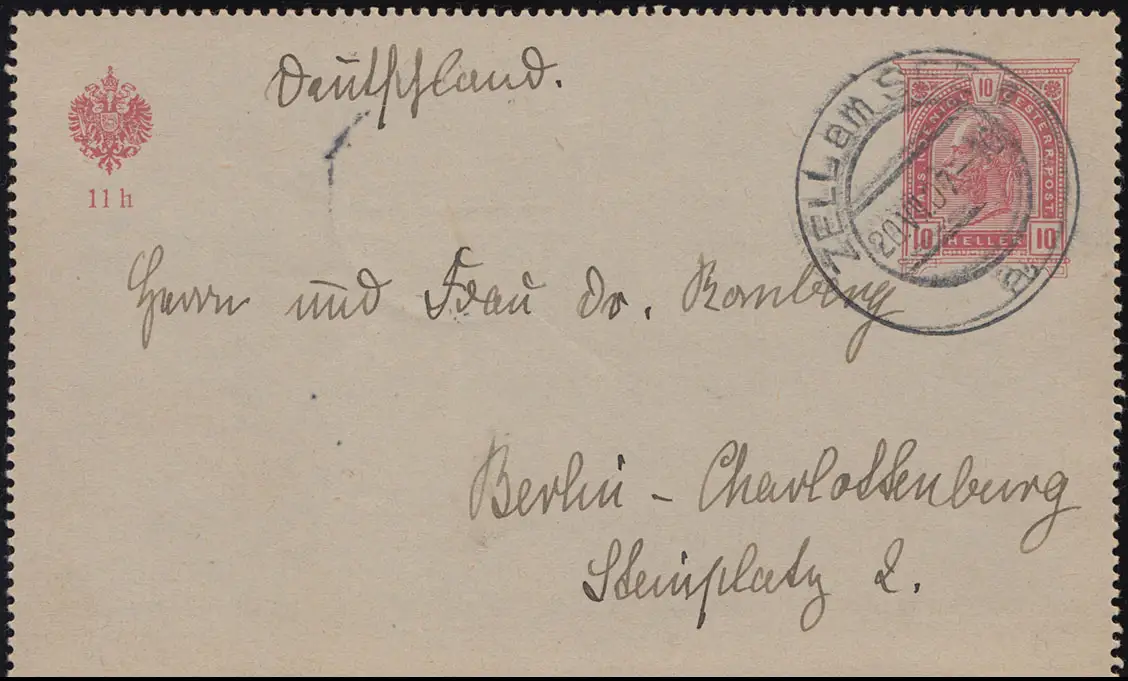 Deutschland.
11 h
10
KAIS. KOENIGL. OESTERR. POST.
10 HELLER 10
ZELL am SEE
20.VI.07
a
Herrn und Frau Dr. Romberg
Berlin - Charlottenburg
Steinplatz 2.